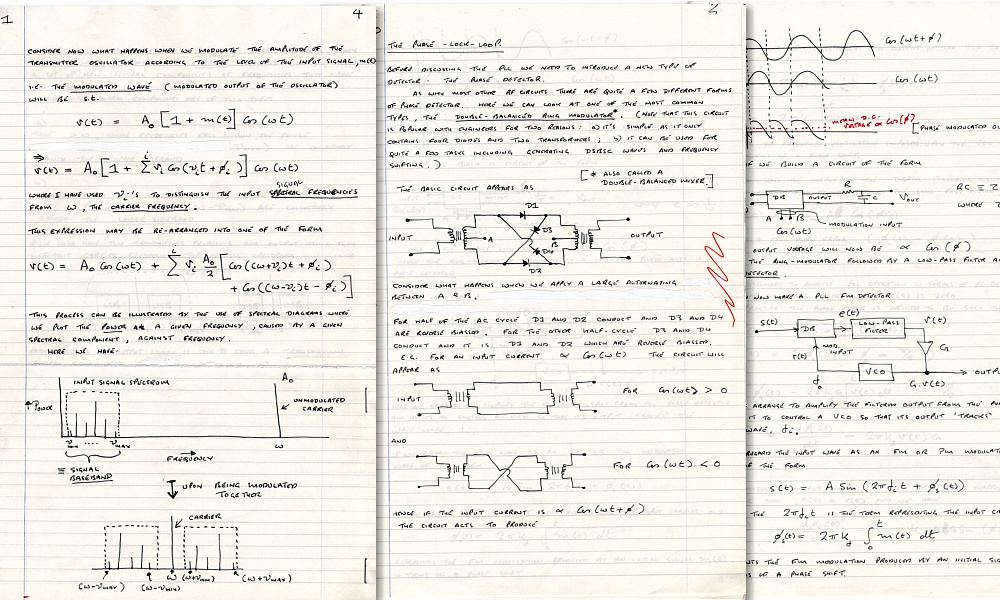 1
4
CONSIDER NOW WHAT HAPPENS WHEN WE MODULATE THE AMPLITUDE OF THE
TRANSMITTER OSCILLATOR ACCORDING TO THE LEVEL OF THE INPUT SIGNAL, m(t)
I.E. THE MODULATED WAVE (MODULATED OUTPUT OF THE OSCILLATOR)
WILL BE S.t.
v(t) = A₀ [1 + m(t)] Cos(ωt)
⇒ v(t) = A₀ [1 + Σⁱ vᵢ Cos(νᵢt + φᵢ)] Cos(ωt)
SIGNAL
WHERE I HAVE USED νᵢ'S TO DISTINGUISH THE INPUT SPECTRAL FREQUENCIES
FROM ω, THE CARRIER FREQUENCY.
THIS EXPRESSION MAY BE RE-ARRANGED INTO ONE OF THE FORM
v(t) = A₀ Cos(ωt) + Σⁱ vᵢ A₀/2 [Cos((ω+νᵢ)t + φᵢ)
+ Cos((ω-νᵢ)t - φᵢ)]
THIS PROCESS CAN BE ILLUSTRATED BY THE USE OF SPECTRAL DIAGRAMS WHERE
WE PLOT THE POWER AT A GIVEN FREQUENCY, CAUSED BY A GIVEN
SPECTRAL COMPONENT, AGAINST FREQUENCY.
HERE WE HAVE-
INPUT SIGNAL SPECTRUM
A₀
↑ POWER
UNMODULATED
CARRIER
νMIN .... νMAX
ω
FREQUENCY
≡ SIGNAL
BASEBAND
UPON BEING MODULATED
TOGETHER
CARRIER
(ω-νMAX) (ω-νMIN) ω (ω+νMIN) (ω+νMAX)
2
THE PHASE-LOCK-LOOP.
BEFORE DISCUSSING THE PLL WE NEED TO INTRODUCE A NEW TYPE OF
DETECTOR: THE PHASE DETECTOR.
AS WITH MOST OTHER RF CIRCUITS THERE ARE QUITE A FEW DIFFERENT FORMS
OF PHASE DETECTOR. HERE WE CAN LOOK AT ONE OF THE MOST COMMON
TYPES, THE DOUBLE-BALANCED RING MODULATOR*. (NOTE THAT THIS CIRCUIT
IS POPULAR WITH ENGINEERS FOR TWO REASONS: a) IT'S SIMPLE AS IT ONLY
CONTAINS FOUR DIODES AND TWO TRANSFORMERS; b) IT CAN BE USED FOR
QUITE A FEW TASKS INCLUDING GENERATING DSBSC WAVES AND FREQUENCY
SHIFTING.)
[* ALSO CALLED A
DOUBLE-BALANCED MIXER.]
THE BASIC CIRCUIT APPEARS AS
D1
INPUT A D3 B OUTPUT
D4
D2
CONSIDER WHAT HAPPENS WHEN WE APPLY A LARGE ALTERNATING
BETWEEN A & B.
FOR HALF OF THE AC CYCLE D1 AND D2 CONDUCT AND D3 AND D4
ARE REVERSE BIASSED. FOR THE OTHER HALF-CYCLE D3 AND D4
CONDUCT AND IT IS D1 AND D2 WHICH ARE REVERSE BIASSED.
E.G. FOR AN INPUT CURRENT ∝ Cos(ωt) THE CIRCUIT WILL
APPEAR AS
INPUT
FOR Cos(ωt) > 0
AND
FOR Cos(ωt) < 0
HENCE IF THE INPUT CURRENT IS ∝ Cos(ωt+φ)
THE CIRCUIT ACTS TO PRODUCE
Cos(ωt+φ)
Cos(ωt)
MEAN D.C.
VOLTAGE ∝ Cos(φ)
[PHASE MODULATED
IF WE BUILD A CIRCUIT OF THE FORM
DB OUTPUT R C VOUT
RC ≡
WHERE
A B
MODULATION INPUT
Cos(ωt)
OUTPUT VOLTAGE WILL NOW BE ∝ Cos(φ)
THE RING-MODULATOR FOLLOWED BY A LOW-PASS FILTER
DETECTOR.
NOW MAKE A PLL FM DETECTOR
s(t) DB e(t) LOW-PASS
FILTER v(t)
r(t) MOD.
INPUT G
VCO G.v(t) OUTPUT
ARRANGE TO AMPLIFY THE FILTERED OUTPUT FROM THE
IT TO CONTROL A VCO SO THAT ITS OUTPUT 'TRACKS'
WAVE, fᵢ.
REGARD THE INPUT WAVE AS AN FM OR PM
OF THE FORM
s(t) = A Sin(2πfᵢt + φₛ(t))
THE 2πfᵢt IS THE TERM REPRESENTING THE INPUT
φₛ(t) = 2πk_f ∫₀ᵗ m(t) dt
THE FM MODULATION PRODUCED BY AN INITIAL
OF A PHASE SHIFT.